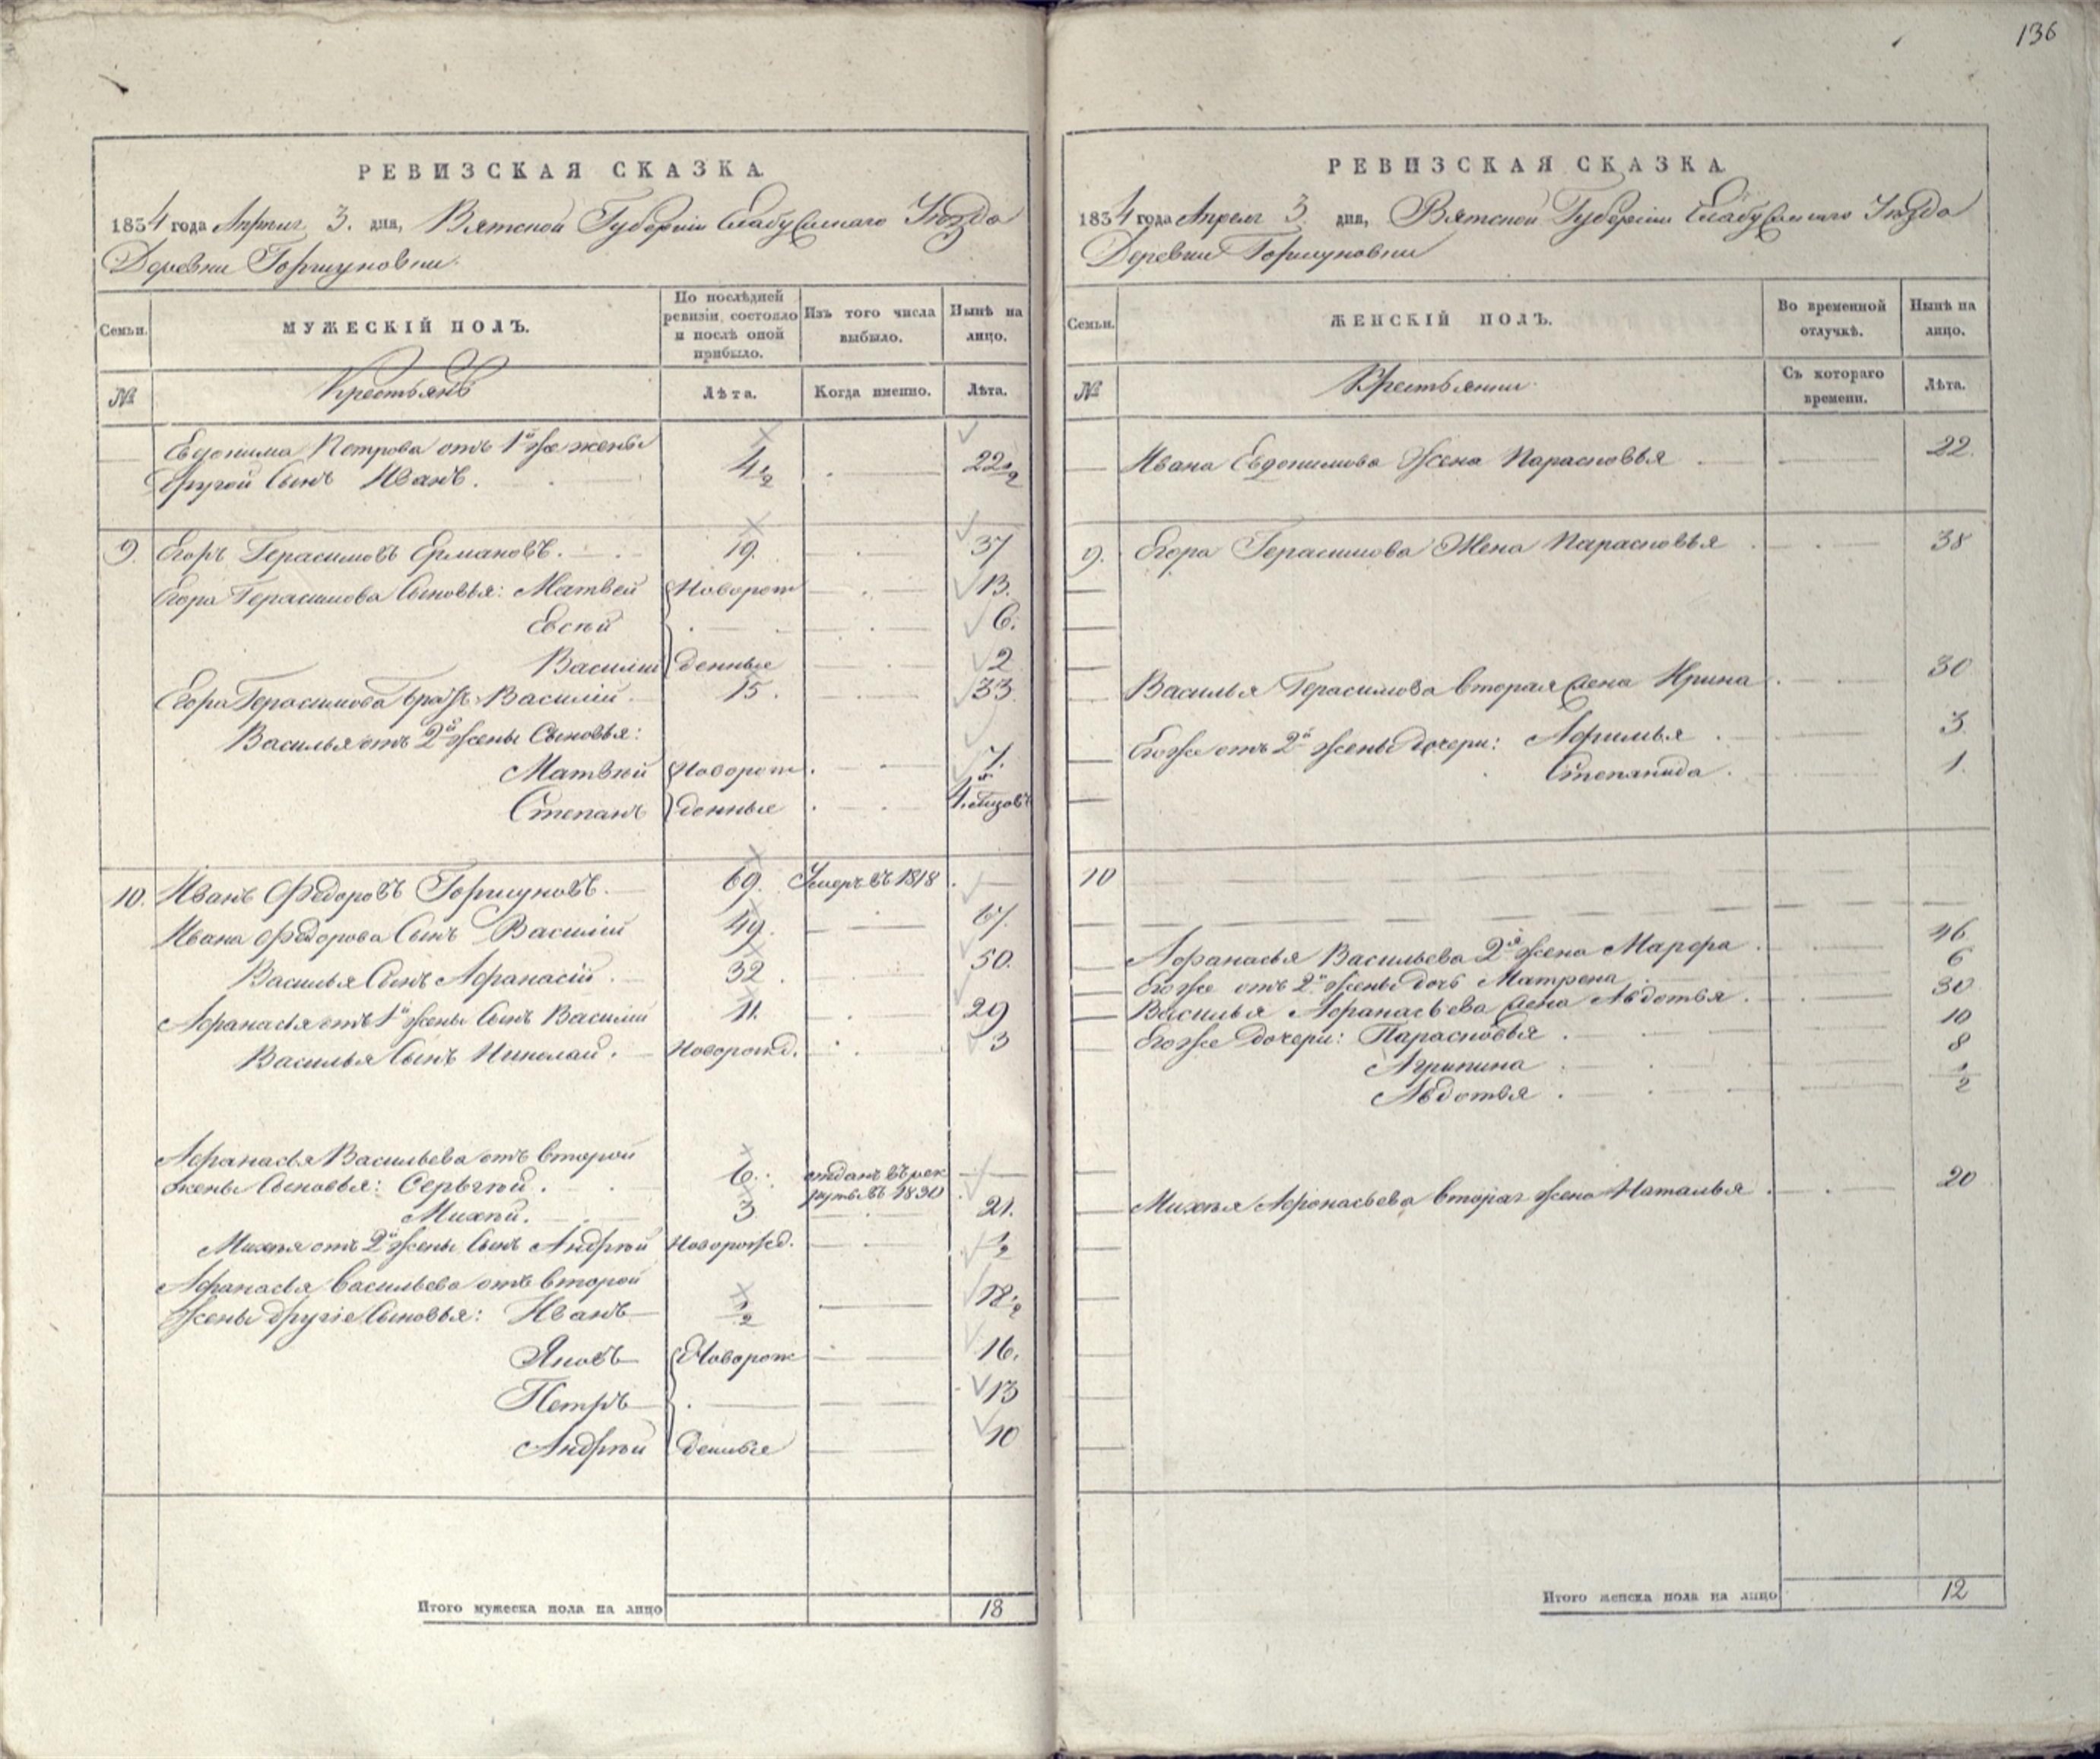 136
РЕВИЗСКАЯ СКАЗКА.
1834 года Апреля 3. дня, Вятской Губернiи Елабужскаго Уѣзда
Деревни Горшуновки.
Семьи.
МУЖЕСКІЙ ПОЛЪ.
По послѣдней ревизіи, состояло и послѣ оной прибыло.
Изъ того числа выбыло.
Нынѣ на лицо.
№
Крестьянъ
Лѣта.
Когда именно.
Лѣта.
Евдокима Петрова отъ 1й же жены
другой Сынъ Иванъ. 4 1/2 22 1/2
9. Егоръ Герасимовъ Ермановъ. 19. 37
Егора Герасимова Сыновья: Матвей Новорож 13.
Евсѣй 6.
Василiй денные 2
Егора Герасимова братъ Василiй. 15. 33.
Василья отъ 2й жены Сыновья:
Матвѣй Новорож 7.
Степанъ денные
10. Иванъ Федоровъ Горшуновъ. 69. Умеръ въ 1818.
Ивана Федорова Сынъ Василiй 49. 67.
Василья Сынъ Афанасiй. 32. 50.
Афанасья отъ 1й жены Сынъ Василiй 11. 29
Василья Сынъ Николай. Новорожд. 3
Афанасья Васильева отъ второй
жены Сыновья: Сергѣй. 6. отданъ въ рек
руты въ 1830.
Михѣй. 3 21.
Михѣя отъ 2й жены Сынъ Андрѣй Новорожд. 1/2
Афанасья Васильева отъ второй
жены другiе Сыновья: Иванъ 1/2 18 1/2
Яковъ Новорож 16.
Петръ 13
Андрѣй денные 10
Итого мужеска пола на лицо 18
РЕВИЗСКАЯ СКАЗКА.
1834 года Апреля 3 дня, Вятской Губернiи Елабужскаго Уѣзда
Деревни Горшуновки
Семьи.
ЖЕНСКІЙ ПОЛЪ.
Во временной отлучкѣ.
Нынѣ на лицо.
№
Крестьянки.
Съ котораго времени.
Лѣта.
Ивана Евдокимова Жена Парасковья 22.
9. Егора Герасимова Жена Парасковья 38
Василья Герасимова вторая жена Ирина 30
Егоже отъ 2й жены дочери: Афимья 3.
Степанида. 1.
10
Афанасья Васильева 2я жена Марфа 46
Егоже отъ 2й жены дочь Матрена 6
Василья Афанасьева жена Авдотья. 30
Егоже дочери: Парасковья 10
Агрипина 8
Авдотья 1/2
Михѣя Афонасьева вторая жена Наталья 20
Итого женска пола на лицо 12